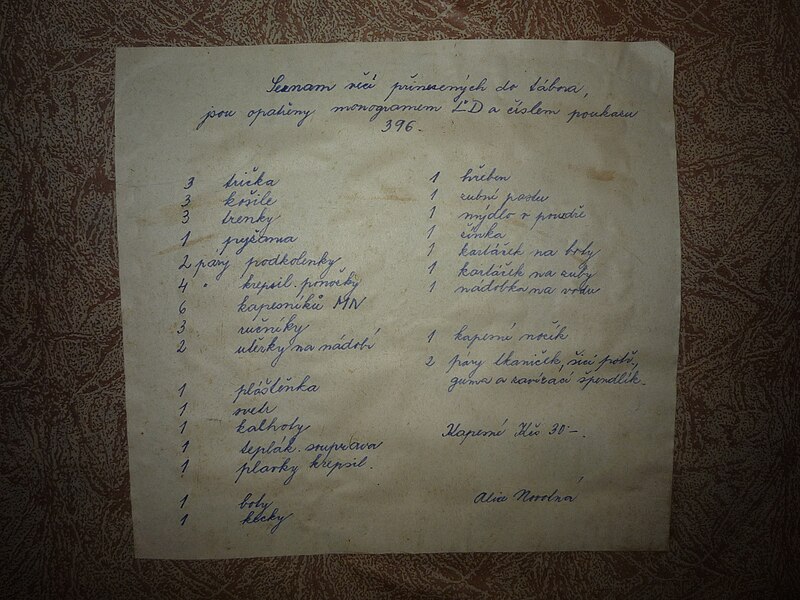 Seznam věcí přinesených do tábora,
jsou opatřeny monogramem ĽD a číslem poukazu
396.-
3 trička
3 košile
3 trenky
1 pyžama
2 páry podkolenky
4 " krepsil. ponožky
6 kapesníků MN
3 ručníky
2 utěrky na nádobí
1 pláštěnka
1 svetr
1 kalhoty
1 teplák. souprava
1 plavky krepsil.
1 boty
1 kecky
1 hřeben
1 zubní pastu
1 mýdlo v pouzdře
1 žínka
1 kartáček na boty
1 kartáček na zuby
1 nádobka na vodu
1 kapesní nožík
2 páry tkaniček, šicí potř,
guma a zavírací špendlík.
Kapesné Kčs 30.-.
Novotná